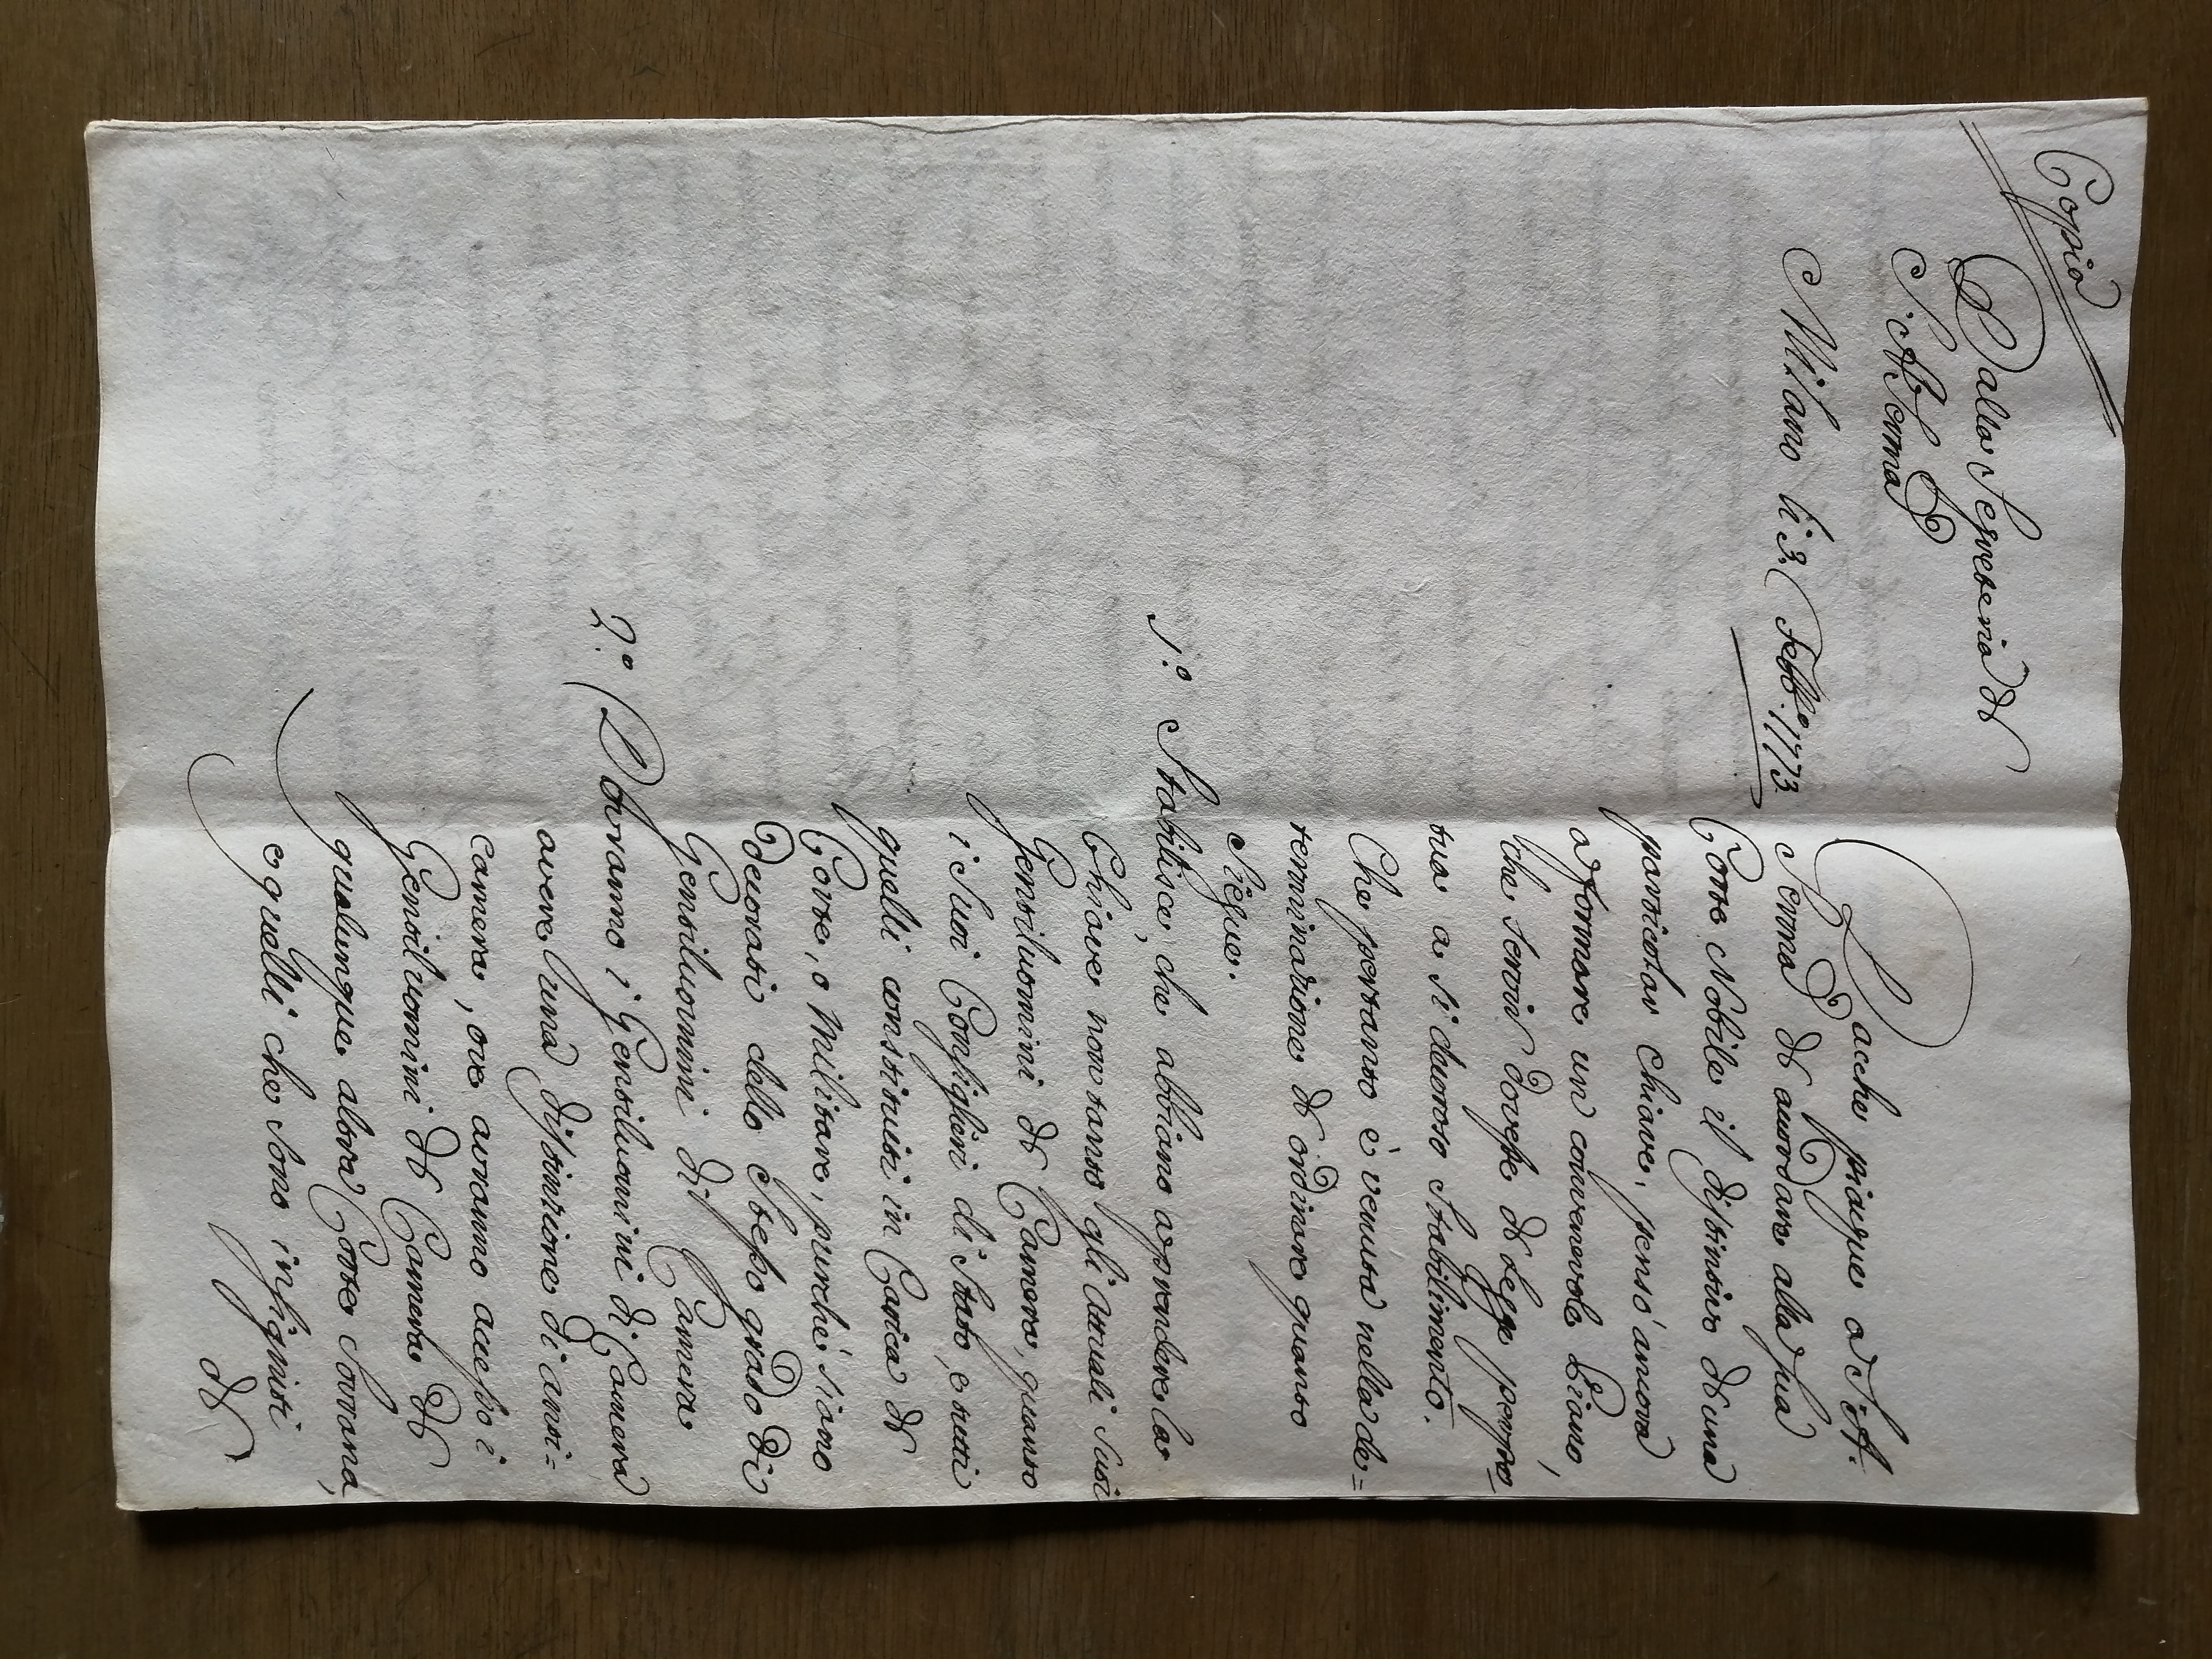 Copia
Dalla Segreteria di
S. A. Serma
Milano li 3. Febb.º 1773.
Dacche piacque a S. A.
Serma di accordare alla sua
Corte Nobile il distintivo d'una
particolar chiave, pensò ancora
a formare un convenevole Piano,
che servir dovesse di legge perpe=
tua a si decoroso Stabilimento.
Che pertanto è venuta nella de=
terminazione di ordinare quanto
Siegue.
1.º Stabilisce, che abbiano a prendere la
Chiave non tanto gli attuali Suoi
Gentiluomini di Camera, quanto
i Suoi Consiglieri di Stato, e tutti
quelli constituiti in Carica di
Corte, o Militare, purchè siano
decorati dello Stesso grado di
Gentiluomini di Camera
2.º Dovranno i Gentiluomini di Camera
avere una distinzione di anti=
camera, ove avranno accesso i
Gentiluomini di Camera di
qualunque altra Corte Sovrana,
e quelli che sono insigniti
di